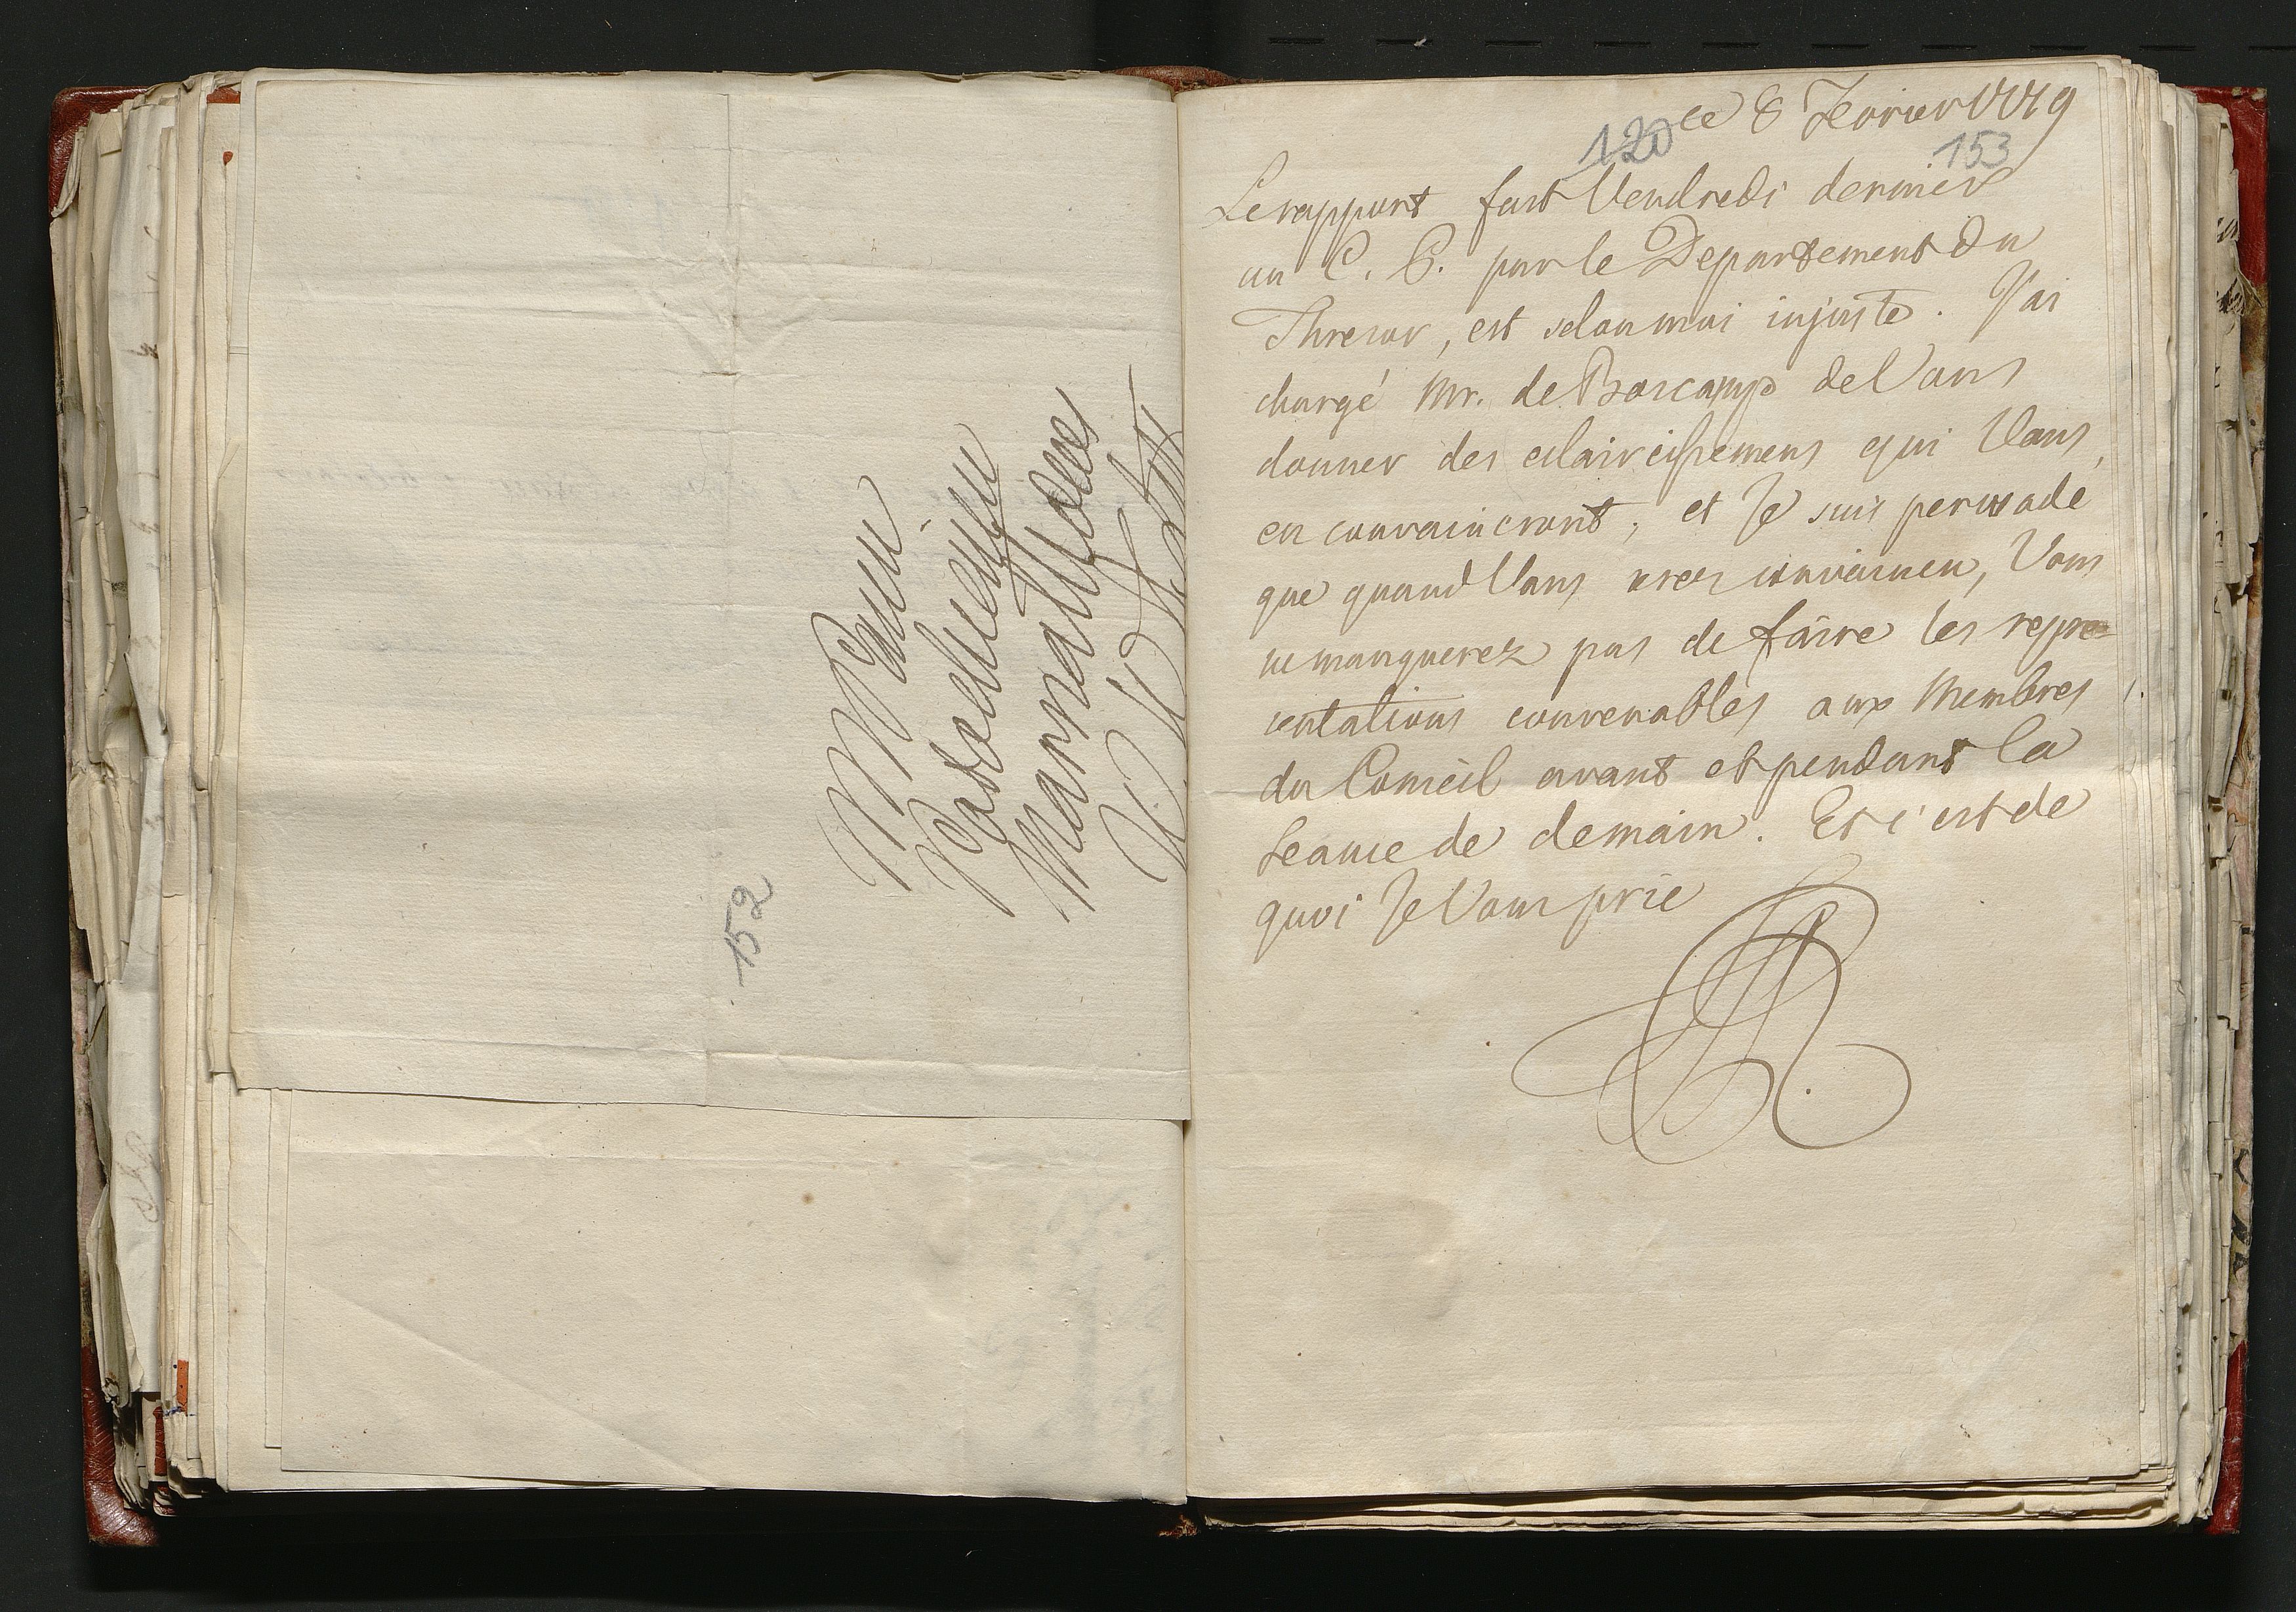 152
120 ce 8 Fevrier 1779
153
Le rapport fait Vendredi dernier
au C. P. par le Departement du
Thresor, est selon moi injuste. J'ai
chargé Mr. de Boscamp de Vous
donner des eclaircissemens qui Vous
en convaincront, et Je suis persuadé
que quand Vous serez convaincu, Vous
ne manquerez pas de faire les repre=
sentations convenables aux Membres
du Conseil avant et pendant la
Seance de demain. Et c'est de
quoi Je Vous prie
SAR